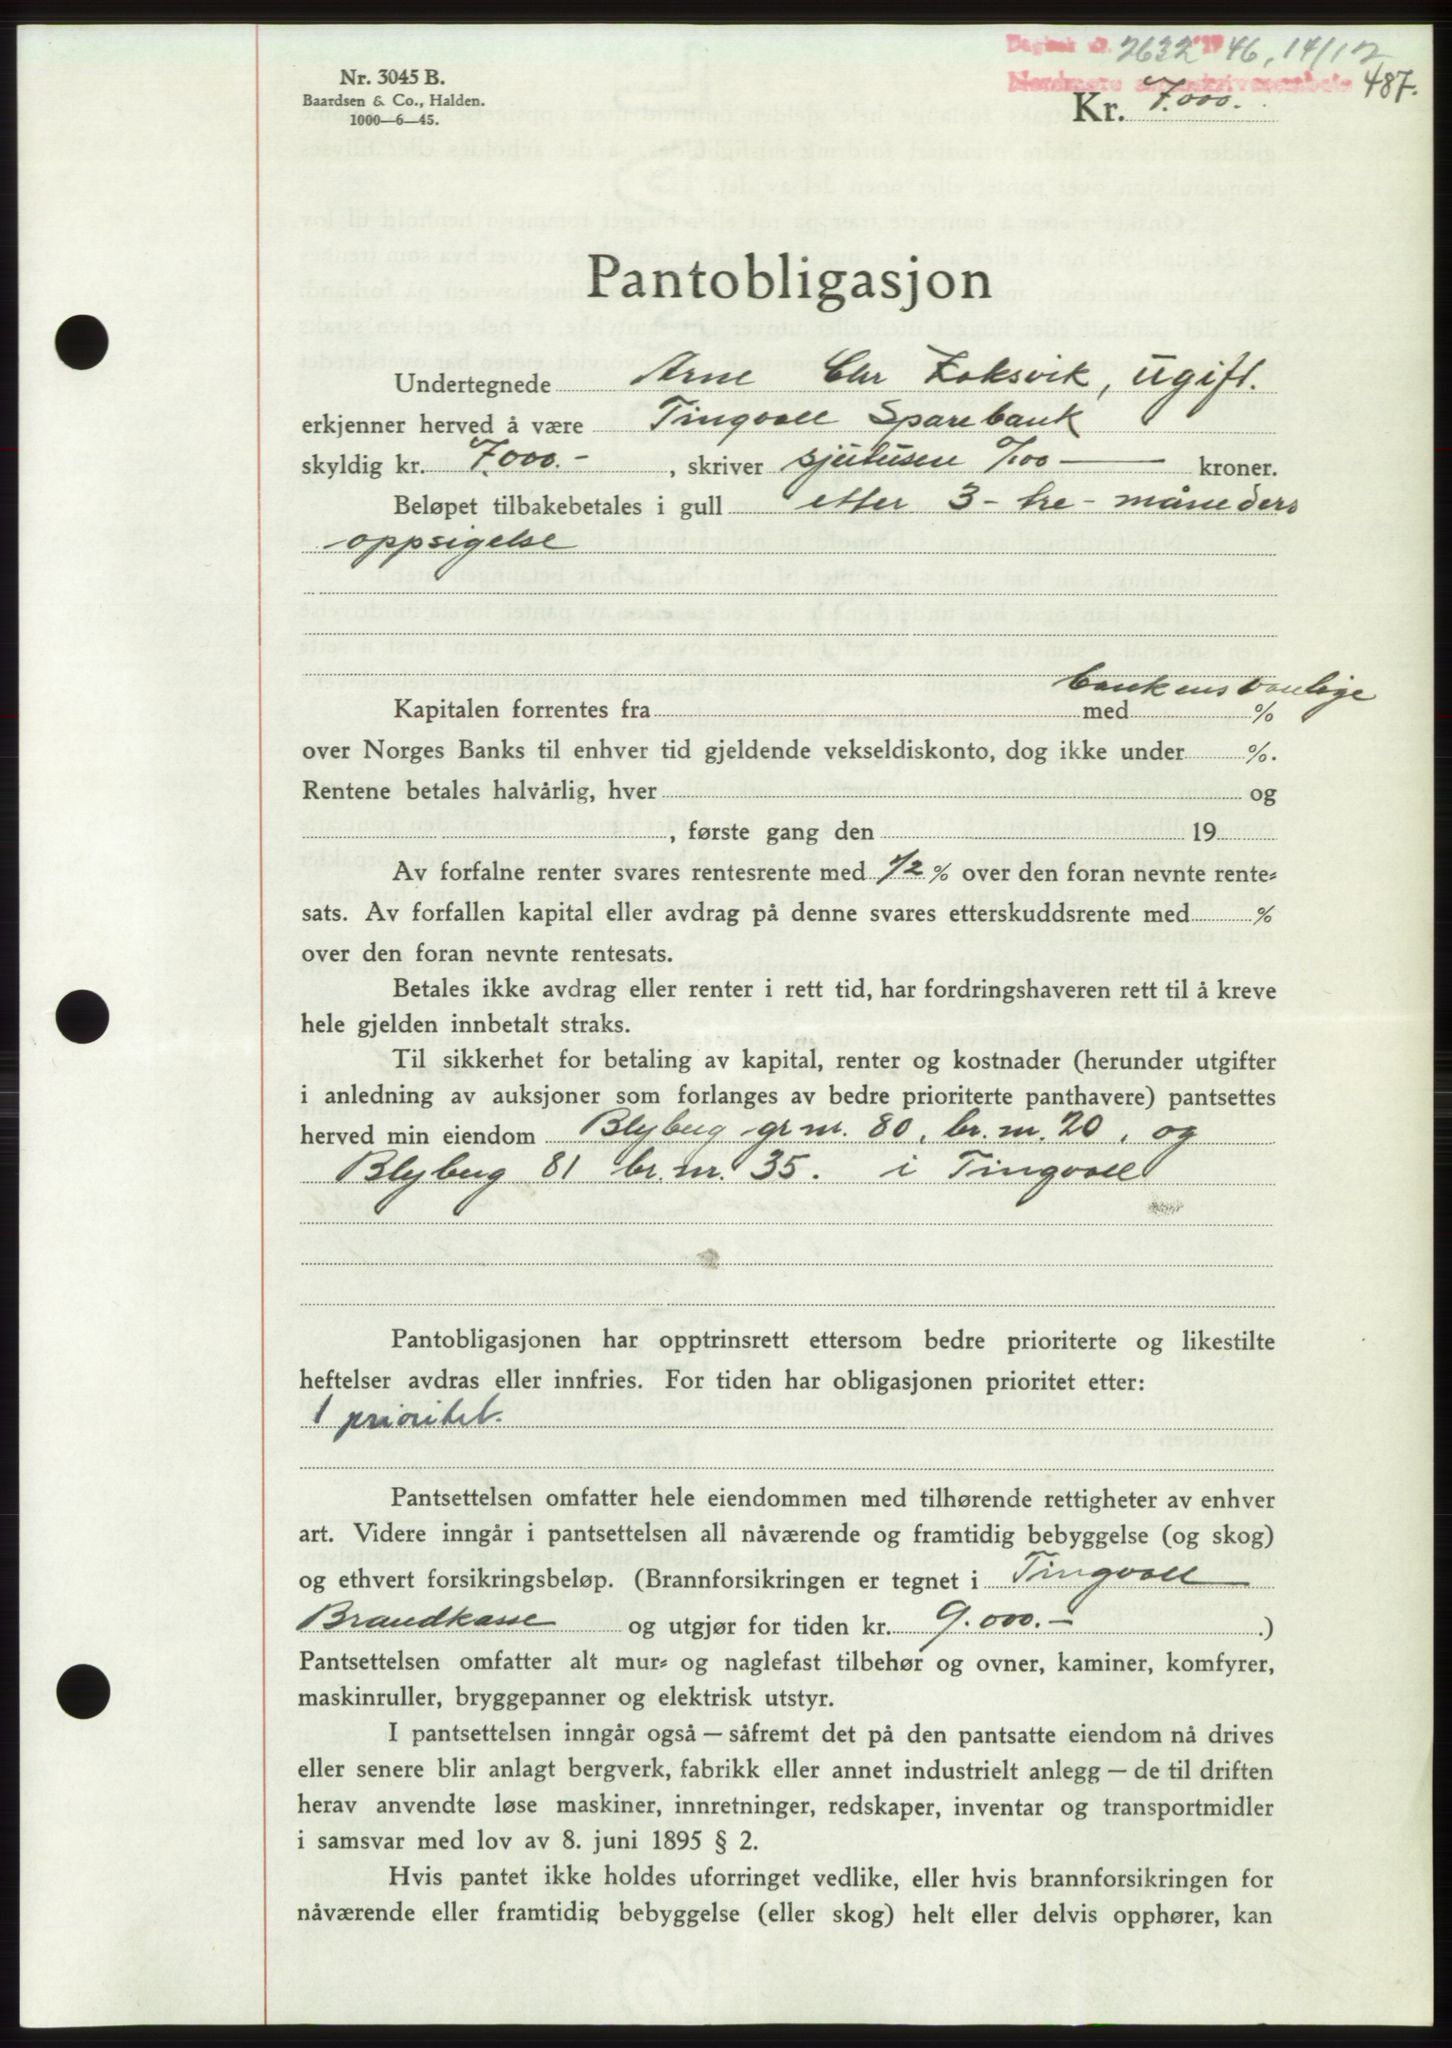 Dagbok nr. 2632 1946, 14/12
Nordmøre sorenskriverembete 487.
Nr. 3045 B.
Baardsen & Co., Halden.
1000—6—45.
Kr. 7.000.
Pantobligasjon
Undertegnede Arne Chr Koksvik, ugift.
erkjenner herved å være Tingvoll Sparebank
skyldig kr. 7.000.- , skriver sjutusen 0/100 — kroner.
Beløpet tilbakebetales i gull etter 3 - tre - måneders
oppsigelse
bankens vanlige
Kapitalen forrentes fra med %
over Norges Banks til enhver tid gjeldende vekseldiskonto, dog ikke under %.
Rentene betales halvårlig, hver og
, første gang den 19
Av forfalne renter svares rentesrente med 1/2 % over den foran nevnte rente-
sats. Av forfallen kapital eller avdrag på denne svares etterskuddsrente med %
over den foran nevnte rentesats.
Betales ikke avdrag eller renter i rett tid, har fordringshaveren rett til å kreve
hele gjelden innbetalt straks.
Til sikkerhet for betaling av kapital, renter og kostnader (herunder utgifter
i anledning av auksjoner som forlanges av bedre prioriterte panthavere) pantsettes
herved min eiendom Blybug gr nr. 80, br. nr. 20, og
Blybug 81 br. nr. 35. i Tingvoll
Pantobligasjonen har opptrinsrett ettersom bedre prioriterte og likestilte
heftelser avdras eller innfries. For tiden har obligasjonen prioritet etter:
1 prioritet.
Pantsettelsen omfatter hele eiendommen med tilhørende rettigheter av enhver
art. Videre inngår i pantsettelsen all nåværende og framtidig bebyggelse (og skog)
og ethvert forsikringsbeløp. (Brannforsikringen er tegnet i Tingvoll
Brandkasse og utgjør for tiden kr. 9.000.- .)
Pantsettelsen omfatter alt mur- og naglefast tilbehør og ovner, kaminer, komfyrer,
maskinruller, bryggepanner og elektrisk utstyr.
I pantsettelsen inngår også — såfremt det på den pantsatte eiendom nå drives
eller senere blir anlagt bergverk, fabrikk eller annet industrielt anlegg — de til driften
herav anvendte løse maskiner, innretninger, redskaper, inventar og transportmidler
i samsvar med lov av 8. juni 1895 § 2.
Hvis pantet ikke holdes uforringet vedlike, eller hvis brannforsikringen for
nåværende eller framtidig bebyggelse (eller skog) helt eller delvis opphører, kan